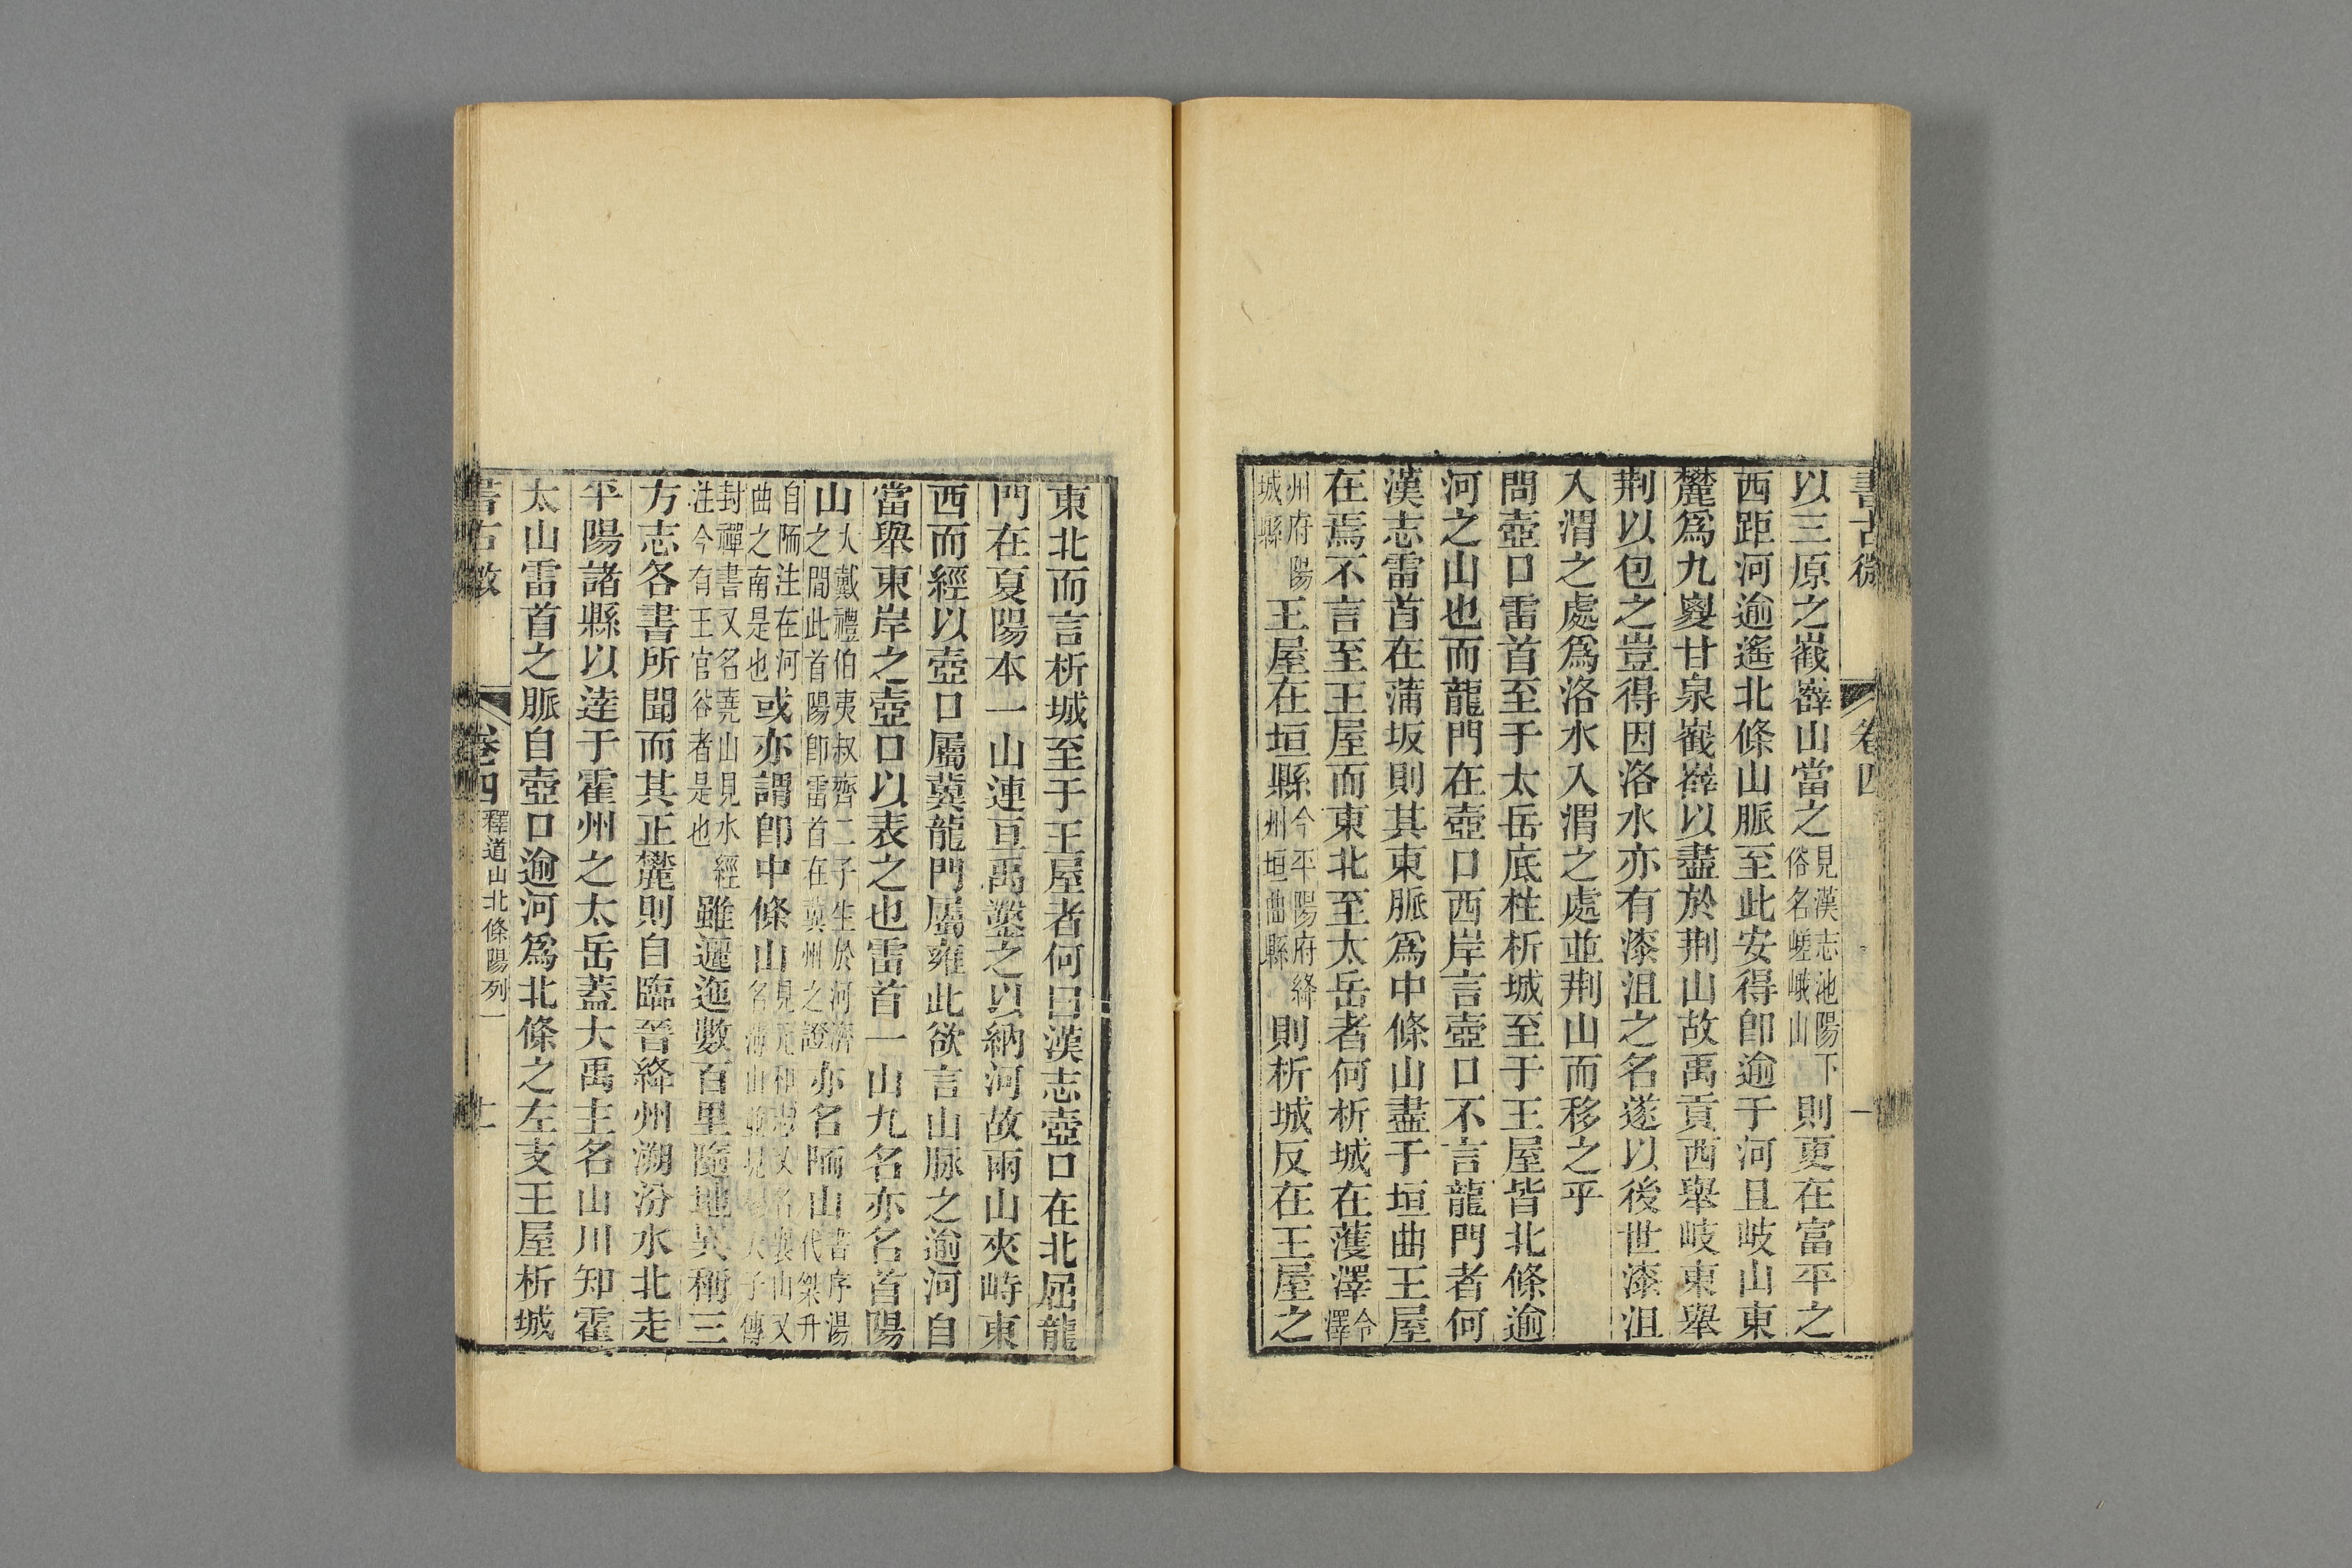 書古微 卷四 一
以三原之嶻嶭山當之見漢志池陽下俗名嵯峨山則更在富平之
西距河逾遙北條山脈至此安得卽逾于河且岐山東
麓爲九嵕甘泉嶻嶭以盡於荆山故禹貢西舉岐東舉
荆以包之豈得因洛水亦有漆沮之名遂以後世漆沮
入渭之處爲洛水入渭之處並荆山而移之乎
問壺口雷首至于太岳底柱析城至于王屋皆北條逾
河之山也而龍門在壺口西岸言壺口不言龍門者何
漢志雷首在蒲坂則其東脈爲中條山盡于垣曲王屋
在焉不言至王屋而東北至太岳者何析城在濩澤今澤
州府陽城縣王屋在垣縣今平陽府絳州垣曲縣則析城反在王屋之
東北而言析城至于王屋者何曰漢志壺口在北屈龍
門在夏陽本一山連亘禹鑿之以納河故兩山夾峙東
西而經以壺口屬冀龍門屬雍此欲言山脉之逾河自
當舉東岸之壺口以表之也雷首一山九名亦名首陽
山大戴禮伯夷叔齊二子生於河濟之間此首陽卽雷首在冀州之證亦名陑山書序湯代桀升
自陑注在河曲之南是也或亦謂卽中條山
封禪書又名蕘山見水經注今有王官谷者是也雖邐迤數百里隨地異稱三
方志各書所聞而其正麓則自臨晉絳州溯汾水北走
平陽諸縣以達于霍州之太岳蓋大禹主名山川知霍
太山雷首之脈自壺口逾河爲北條之左支王屋析城
書古微 卷四 釋道山北條陽列一 十二